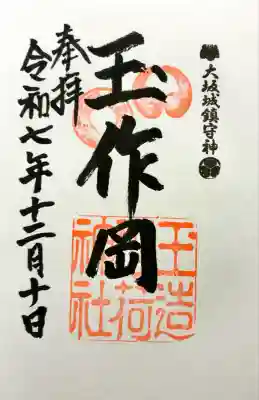 大坂城鎮守神
玉作岡
奉拝
令和七年十二月十日
玉造
稲荷
神社